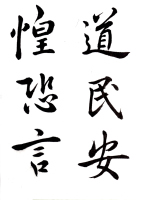 道民安
惶恐言